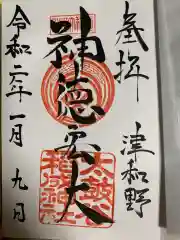 奉拝
津和野
神徳宏大
令和二年一月九日